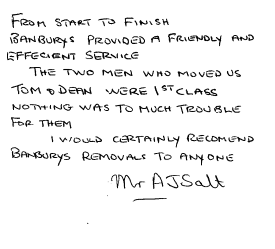 FROM START TO FINISH
BANBURYS PROVIDED A FRIENDLY AND
EFFECIENT SERVICE
THE TWO MEN WHO MOVED US
TOM & DEAN WERE 1ST CLASS
NOTHING WAS TO MUCH TROUBLE
FOR THEM
I WOULD CERTAINLY RECOMEND
BANBURYS REMOVALS TO ANYONE
Mr AJSalt